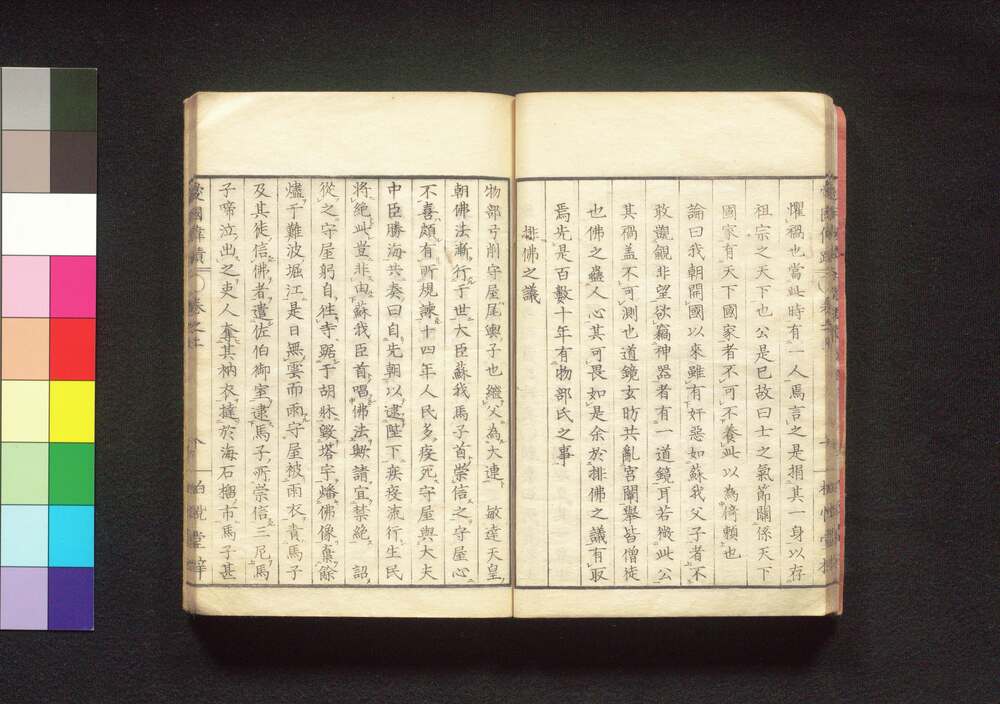 懼禍也當此時有一人焉言之是捐其一身以存
祖宗之天下也公是已故曰士之氣節關係天下
國家有天下國家者不可不養此以為倚頼也
論曰我朝開國以來雖有奸惡如蘇我父子者不
敢覬覦非望欲竊神器者有一道鏡耳若微此公
其禍盖不可測也道鏡玄昉共亂宮闈擧皆僧徒
也佛之蠱人心其可畏如是余於排佛之議有取
焉先是百數十年有物部氏之事
排佛之議
物部弓削守屋尾輿子也繼父為大連 敏達天皇
朝佛法漸行于世大臣蘇我馬子首崇信之守屋心
不喜頗有所規諫十四年人民多疾死守屋與大夫
中臣勝海共奏曰自先朝以逮陛下疾疫流行生民
將絶此豈非由蘇我臣首唱佛法歟請宜禁絶 詔
從之守屋躬自往寺踞于胡牀毀塔宇燔佛像棄餘
燼于難波堀江是日無雲而雨守屋被雨衣責馬子
及其徒信佛者遣佐伯御室逮馬子所崇信三尼馬
子啼泣出之吏人奪其衲衣撻於海石榴市馬子甚
卷之上